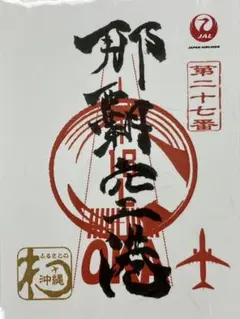 JAL
JAPAN AIRLINES
第二十七番
那覇空港
ふるさとの
沖縄